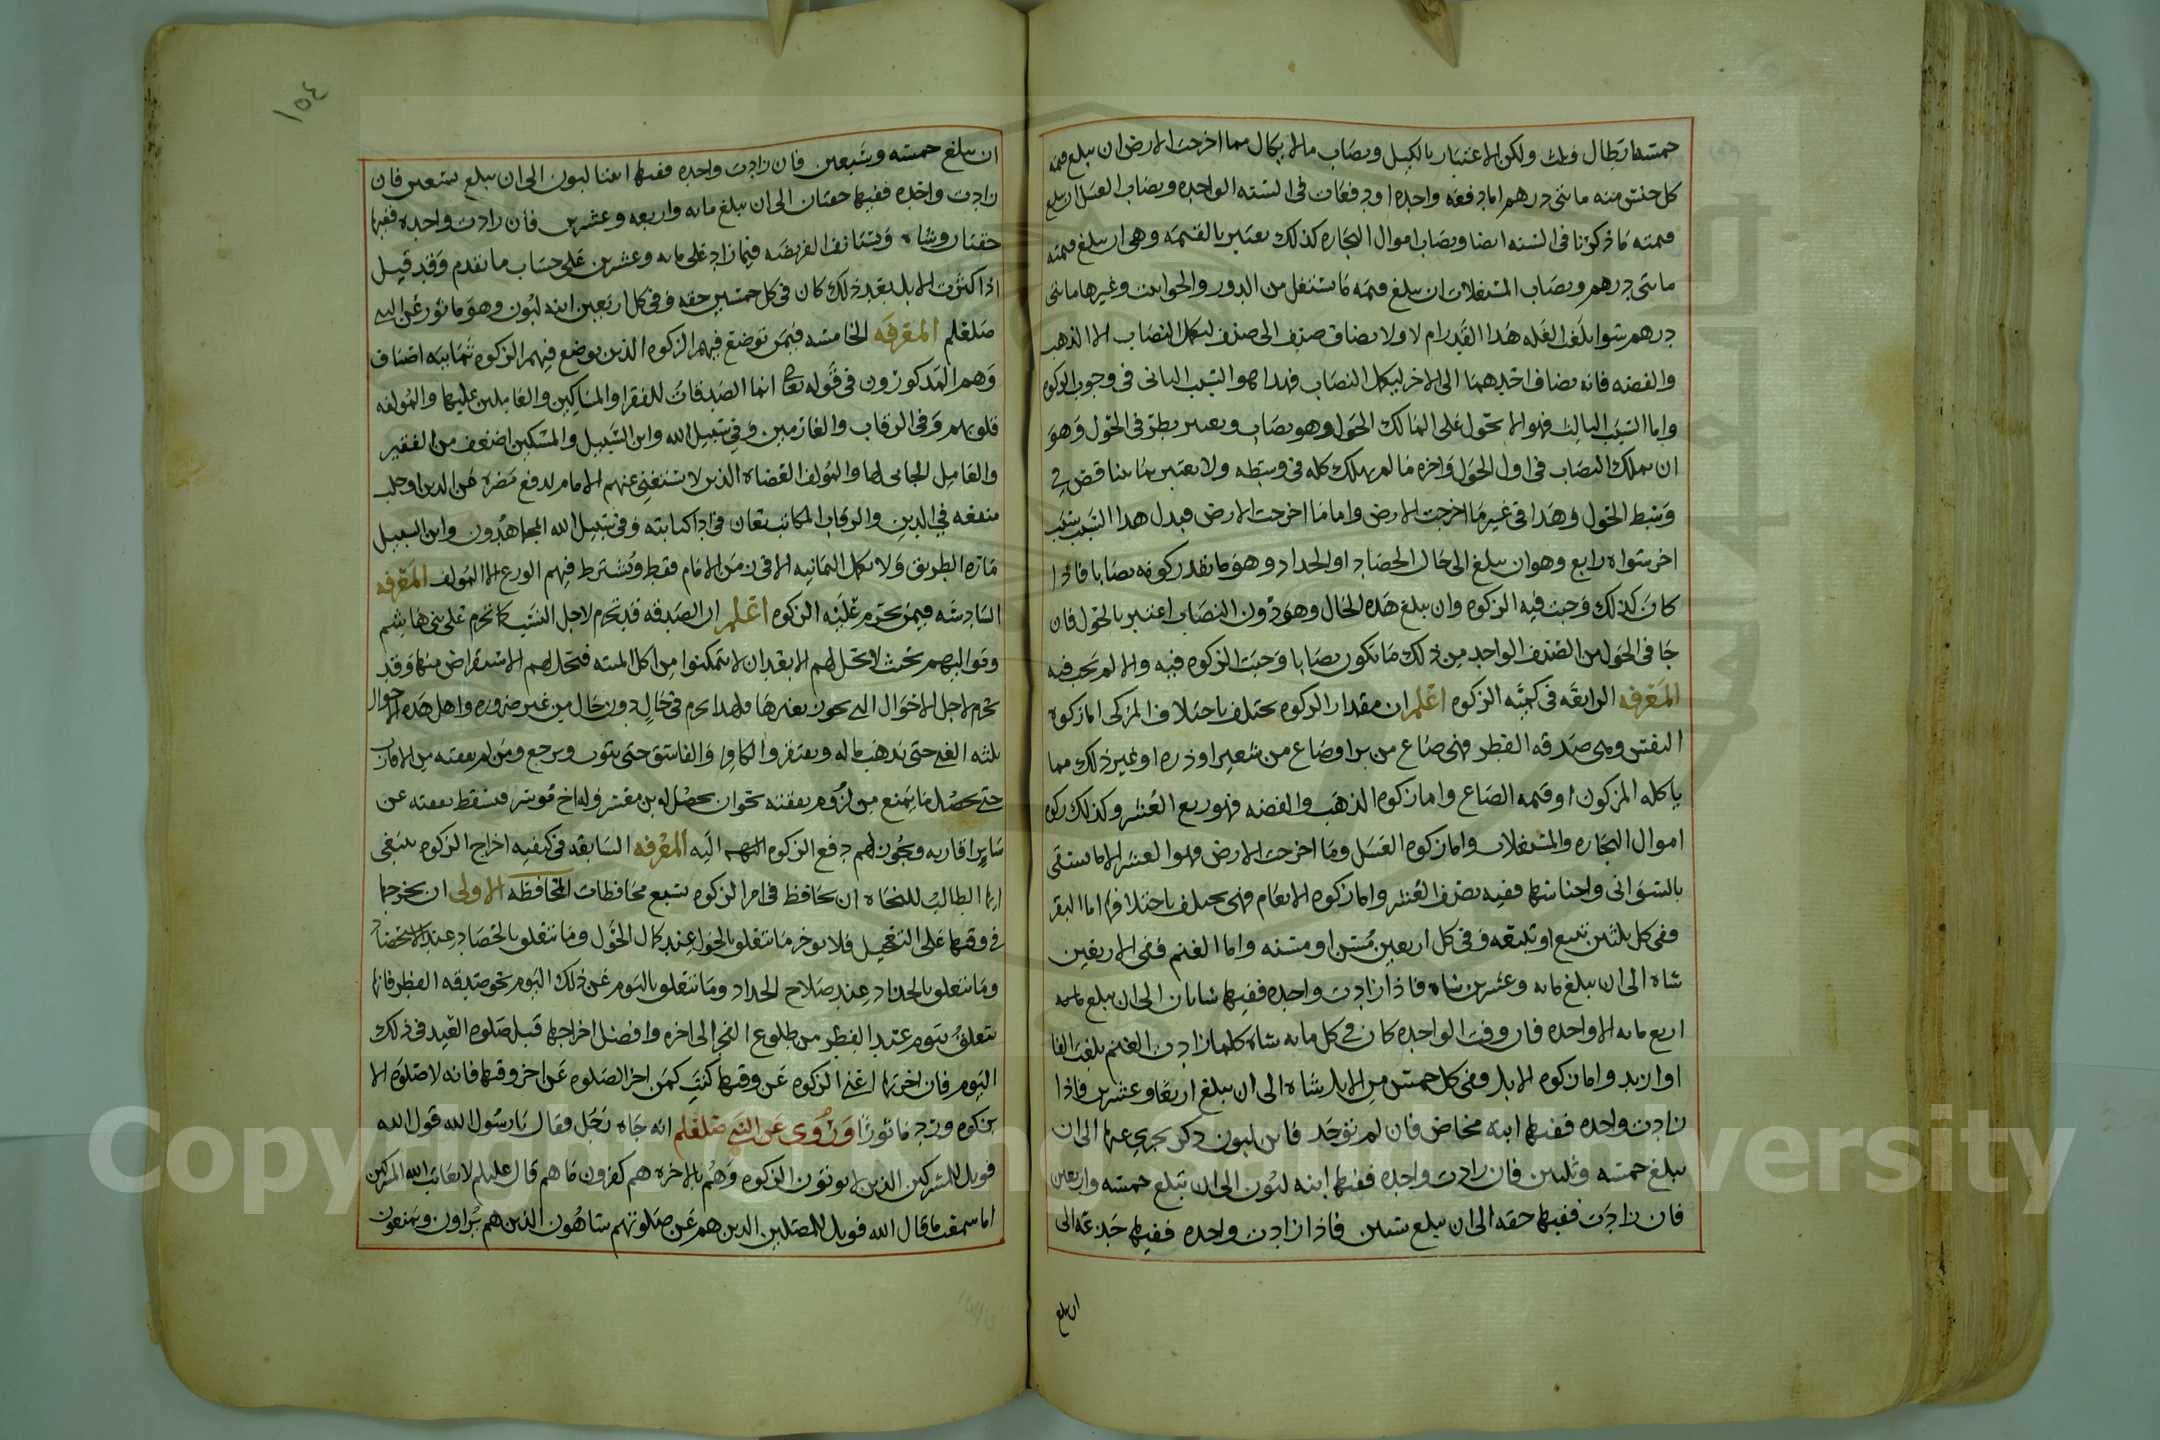 خمسة ارطال وثلث ولكن الاعتبار بالكيل ونصاب ما لا يكال مما اخرجت الارض ان يبلغ قيمة
كل جنس منه مائتي درهم اما دفعه واحده او دفعات في السنه الواحده ونصاب العسل ان يبلغ
قيمته ما ذكرنا في السنه ايضا ونصاب اموال التجاره كذلك يعتبر بالقيمه وهي ان يبلغ قيمته
مائتي درهم ونصاب المستغلات ان يبلغ قيمة ما يستغل من الدور والحوانيت وغيرها مائتي
درهم سوا بلغت الغله هذا القدر ام لا ولا يضاف صنف الى صنف ليكمل النصاب الا الذهب
والفضه فانه يضاف احدهما الى الاخر ليكمل النصاب فهذا هو السبب الثاني في وجوب الزكوه
واما السبب الثالث فهو ان يحول على المالك الحول وهو نصاب ويعتبر بطرفي الحول وهو
ان يملك النصاب في اول الحول واخره ما لم يهلك كله في وسطه ولا يعتبر بما يتناقص في
وسط الحول وهذا في غير ما اخرجت الارض واما ما اخرجت الارض فبدل هذا السبب سبب
اخر سواه رابع وهو ان يبلغ الى حال الحصاد او الجداد وهو ما يقدر كونه نصابا فاذا
كان كذلك وجبت فيه الزكوه وان بلغ هذه الحال وهو دون النصاب اعتبر بالحول فان
جا في الحول من الصنف الواحد من ذلك ما يكون نصابا وجبت الزكوه فيه والا لم يجب فيه
المعرفه الرابعه في كميه الزكوه اعلم ان مقدار الزكوه يختلف باختلاف المزكى اما زكوه
النفس وهي صدقه الفطر فهي صاع من بر او صاع من شعير او ذره او غير ذلك مما
ياكله المزكون او قيمه الصاع واما زكوه الذهب والفضه فهو ربع العشر وكذلك زكوه
اموال التجاره والمستغلات واما زكوه العسل وما اخرجت الارض فهو العشر الا ما يستقى
بالسواني واجناسها ففيه نصف العشر واما زكوه الانعام فهي تختلف باختلافها اما البقر
ففي كل ثلثين تبيع او تبيعه وفي كل اربعين مسن او مسنه واما الغنم ففي الاربعين
شاه الى ان يبلغ مائه وعشرين شاه فاذا زادت واحده ففيها شاتان الى ان يبلغ
اربع مائه الا واحده فان وفت الواحده كان في كل مائه شاه كلما زادت الغنم بلغت الفا
او ازيد واما زكوه الابل ففي كل خمس من الابل شاه الى ان يبلغ اربعا وعشرين فاذا
زادت واحده ففيها ابنة مخاض فان لم توجد فابن لبون ذكر يجزي عنها الى ان
يبلغ خمسه وثلثين فان زادت واحده ففيها ابنه لبون الى ان تبلغ خمسه واربعين
فان زادت ففيها حقه الى ان يبلغ ستين فاذا زادت واحده ففيها جذعه الى
ان يبلغ
١٥٤
ان يبلغ خمسه وسبعين فان زادت واحده ففيها ابنتا لبون الى ان يبلغ تسعين فان
زادت واحده ففيها حقتان الى ان يبلغ مائه واربعه وعشرين فان زادت واحده ففيها
حقتان وشاه وتستانف الفريضه فيما زاد على مائه وعشرين على حساب ما تقدم وقد قيل
اذا كثرت الابل بعد ذلك كان في كل خمسين حقه وفي كل اربعين ابنه لبون وهو ماثور عن النبي
صلعلم المعرفه الخامسه فيمن توضع فيهم الزكوه الذين يوضع فيهم الزكوه ثمانيه اصناف
وهم المذكورون في قوله تعالى انما الصدقات للفقرا والمساكين والعاملين عليها والمولفه
قلوبهم وفي الرقاب والغارمين وفي سبيل الله وابن السبيل والمسكين اضعف من الفقير
والعامل الجابي لها والمولف القضاه الذين لا يستغني عنهم الامام لدفع مضره عن الدين او جلب
منفعه في الدين والرقاب المكاتب يعان في اداء كتابته وفي سبيل الله المجاهدون وابن السبيل
مارة الطريق ولا تكمل الثمانيه الا في زمن الامام فقط ويشترط فيهم الورع الا المولف المعرفه
السادسه فيمن تحرم عليه الزكوه اعلم ان الصدقه قد تحرم لاجل النسب كما تحرم على بني هاشم
ومواليهم بحيث لا تحل لهم الا بعد ان لا يتمكنوا من اكل الميته فتحل لهم الاستقراض منها وقد
تحرم لاجل الاحوال التي يجوز تغيرها ولهذا تحرم في حال دون حال من غير ضروره واهل هذه الاحوال
ثلثه الغني حتى يذهب ماله ويفتقر والكافر والفاسق حتى يتوب ويرجع ومن لزم نفقته من الاقارب
حتى يحصل ما يمنع من لزوم نفقته نحو ان يحصل له بن معسر وله اخ موسر فيسقط نفقته عن
ساير اقاربه ويجوز لهم دفع الزكوه اليه المعرفه السابعه في كيفيه اخراج الزكوه ينبغي
ايها الطالب للنجاه ان تحافظ في امر الزكوه سبع محافظات المحافظه الاولى ان تخرجها
في وقتها على التعجيل فلا يوخر ما يتعلق بالحول عند كمال الحول وما يتعلق بالحصاد عند الاستحصاد
وما يتعلق بالجداد عند صلاح الجداد وما يتعلق باليوم عن ذلك اليوم نحو صدقه الفطر فانها
تتعلق بيوم عيد الفطر من طلوع الفجر الى اخره وافضل اخراجها قبل صلوه العيد في ذلك
اليوم فان اخرتها اعني الزكوه عن وقتها كنت كمن اخر الصلوه عن اخر وقتها فانه لا صلوه الا
بزكوه ورد ماثورا وروي عن النبي صلعلم انه جاه رجل فقال يا رسول الله قول الله
فويل للمشركين الذين لا يوتون الزكوه وهم بالاخره هم كفرون ما هم قال عليلم لا يعاتب الله المشركين
اما سمعت ما قال الله فويل للمصلين الذين هم عن صلوتهم ساهون الذين هم يراون ويمنعون
Copyright © King Saud University